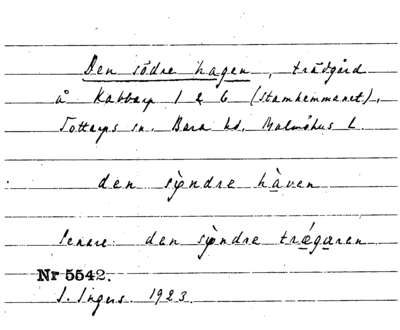 Den södre hagen, trädgård
å Kabbarp 1 & 6 (stamhemmanet),
Tottarps sn. Bara hd. Malmöhus l.
den syndre håven
Senare: den syndre trägaren
Nr 5542.
S. Ingers 1923.